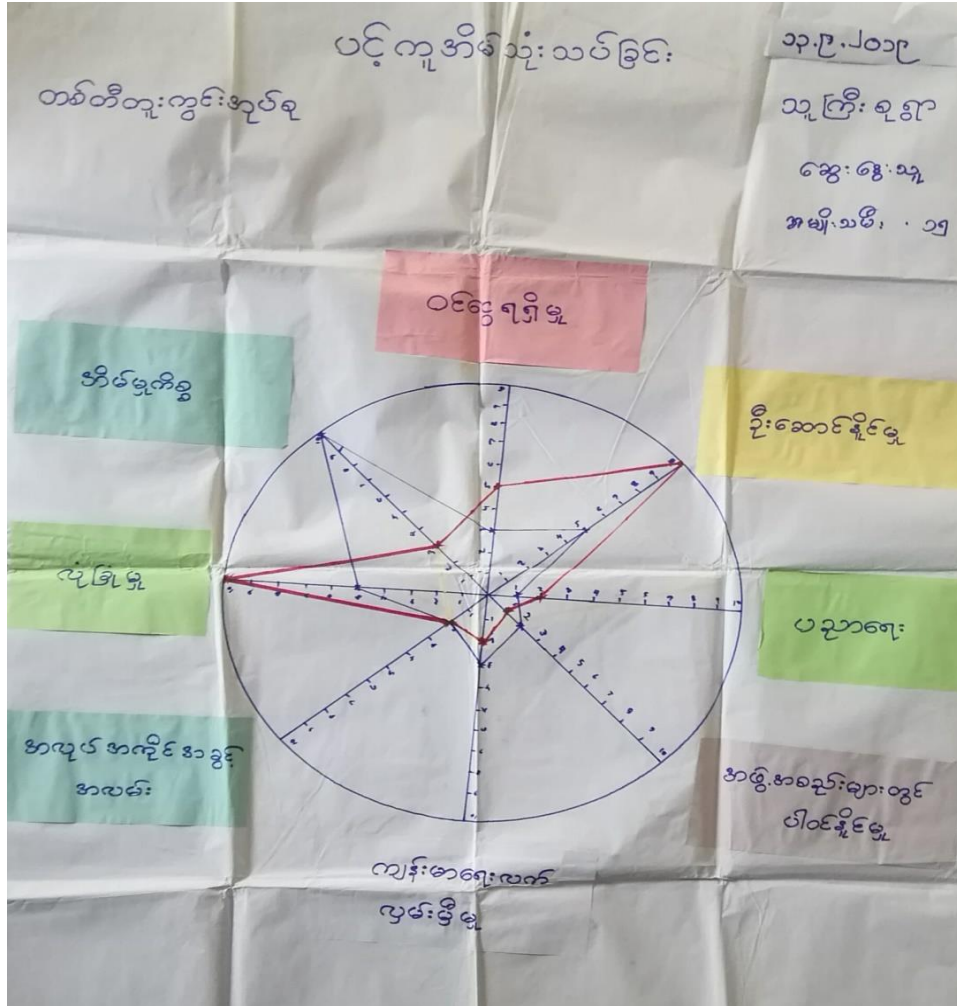 ပင့်ကူအိမ်သုံးသပ်ခြင်း
၁၃.၉.၂၀၁၉
တစ်တီတူးကွင်းအုပ်စု
သူကြီးစုရွာ
ဆွေးနွေးသူ
အမျိုးသမီး - ၁၅
ဝင်ငွေရရှိမှု
အိမ်မှုကိစ္စ
ဦးဆောင်နိုင်မှု
လုံခြုံမှု
ပညာရေး
အလုပ်အကိုင်အခွင့်
အလမ်း
အဖွဲ့အစည်းများတွင်
ပါဝင်နိုင်မှု
ကျန်းမာရေးလက်
လှမ်းမှီမှု